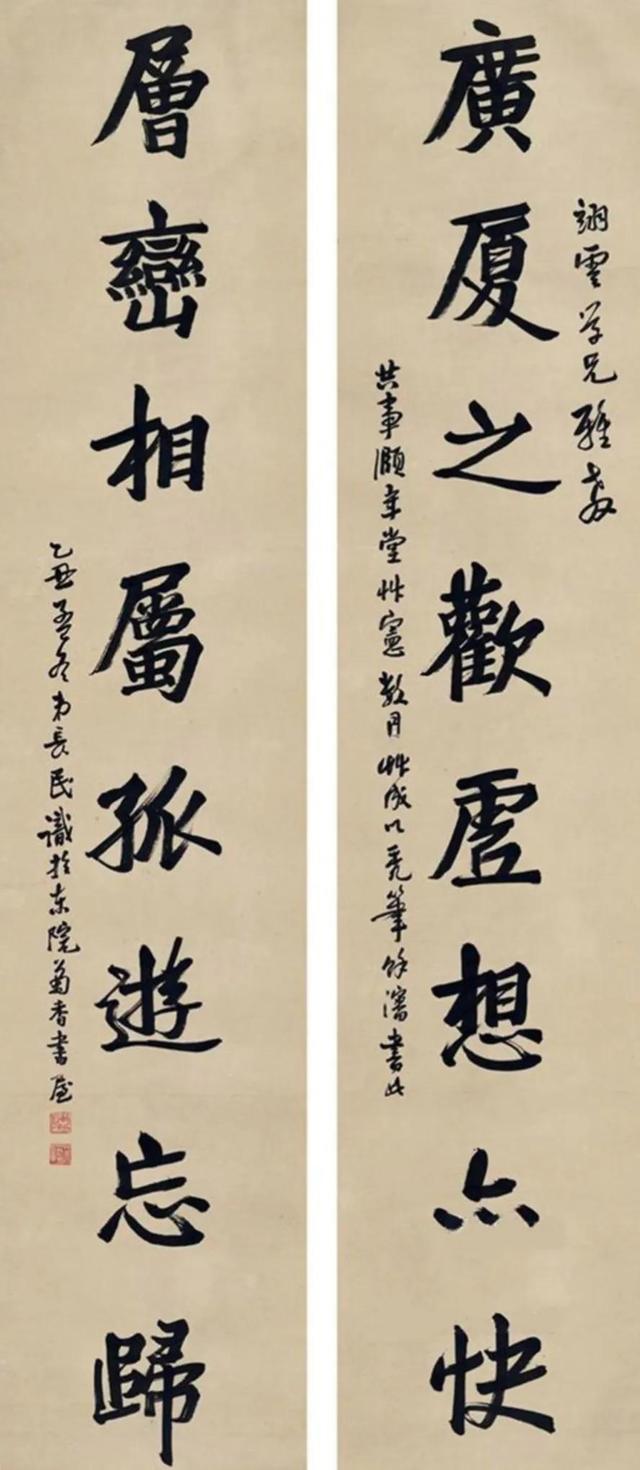 翊雲学兄雅教
廣厦之歡虛想亦快
共事頤年堂 憲 数月 成以禿筆餘瀋書此
層巒相屬孤遊忘歸
乙丑孟冬弟長民識於東院菊香書屋